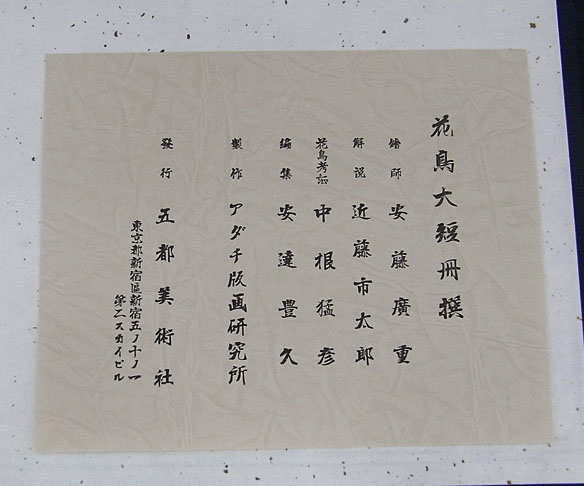 花鳥大短冊撰
繪師 安藤廣重
解説 近藤市太郎
花鳥考証 中根猛彦
編集 安達豊久
製作 アダチ版画研究所
發行 五都美術社
東京都新宿區新宿五ノ十ノ一
第二スカイビル